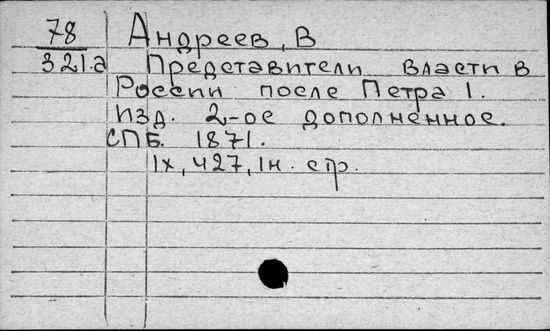 78 Андреев, В
321а Представители власти в
России после Петра I.
Изд. 2-ое дополненное.
СПБ. 1871.
IX, 427, 1н. стр.